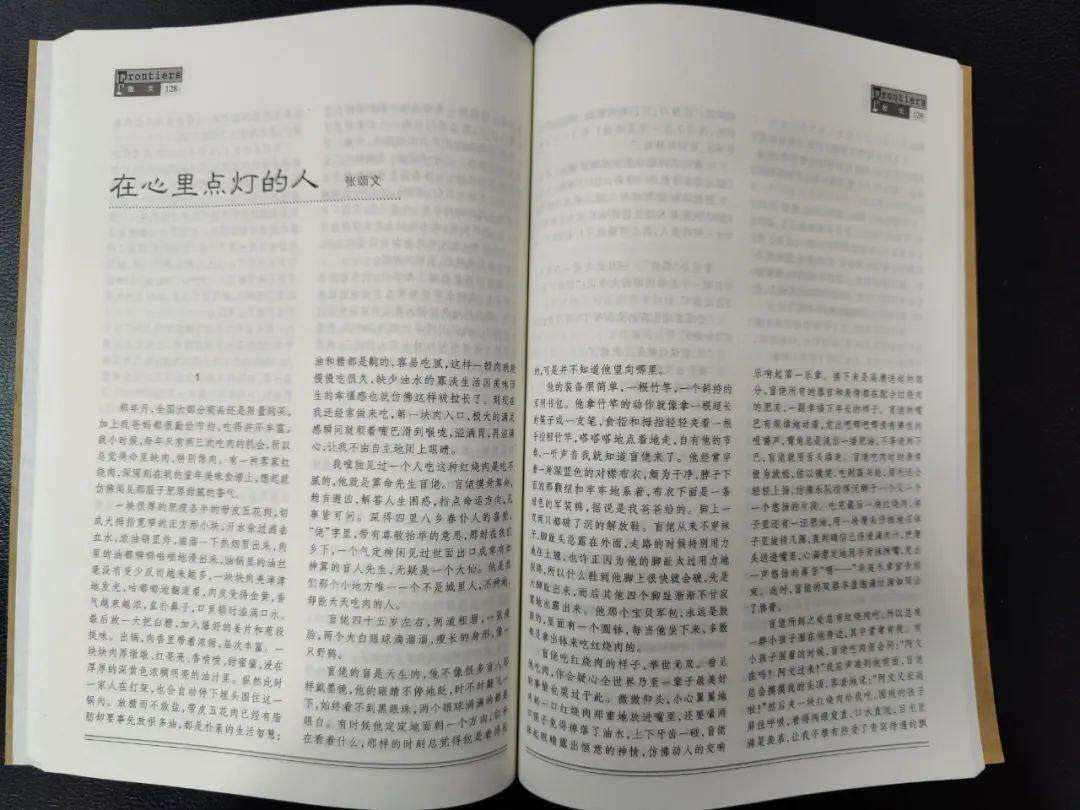 Frontiers
散文 128
在心里点灯的人 张颂文
1
那年月,全国大部分商品还是限量购买。
加上我爸妈都很勤俭节约,吃得并不丰富。
我小时候,每年只有两三次吃肉的机会,所以
总觉得命里缺肉,特别馋肉。有一种客家红
烧肉,深深刻在我的童年美味食谱上,想起就
仿佛闻见那股子肥厚甜腻的香气。
一块很厚的肥瘦各半的带皮五花肉,切
成大拇指宽窄的正方形小块,开水汆过滤去
血水,放油锅里炸,滋滋一下热烟冒出来,肉
里的油都噼噼啪啪地漫出来,油锅里的油丝
毫没有变少反而越来越多,一块块肉亮津津
地发光,咕嘟嘟地翻滚着,肉皮变得金黄,香
气越来越浓,直扑鼻子,口里顿时溢满口水。
最后放一大把白糖,加入爆好的姜片和葱段
提味。出锅,肉香里带着浓甜,层次丰富。一
块块肉厚墩墩、红亮亮、香喷喷,甜蜜蜜,浸在
厚厚的深黄色浓稠明亮的油汁里。纵然此时
一家人在打架,也会自动停下埋头围住这一
锅肉。放糖而不放盐,带皮五花肉已经有脂
肪却要事先放很多油,都是朴素的生活智慧:
油和糖都是齁的,容易吃腻,这样一顿肉就能
慢慢吃很久,缺少油水的寡淡生活因美味而
生的幸福感也就仿佛这样被拉长了。到现在
我还经常做来吃,第一块肉入口,极大的满足
感瞬间就顺着嘴巴滑到喉咙,溢满胃,再溢满
心,让我不由自主地闭上眼睛。
我唯独见过一个人吃这种红烧肉是吃不
腻的,他就是算命先生盲佬。盲佬摸骨算命,
趋吉避凶,解答人生困惑,指点命运方向,凡
事皆可问。深得四里八乡春仆人的喜爱。
“佬”字里,带有尊敬抬举的意思,那时在我们
乡下,一个气定神闲见过世面出口成章有如
神算的盲人先生,无疑是一个大仙。他是我
们那个小地方唯一一个不是城里人,不种地,
却能天天吃肉的人。
盲佬四十五岁左右,两道粗眉,一张瘦
脸,两个大白眼球滴溜溜,瘦长的身形,像一
只野鹤。
盲佬的盲是天生的,他不像很多盲人那
样戴墨镜,他的眼睛不停地眨,时不时翻飞一
下,始终看不到黑眼珠,两个眼球满满的都是
眼白。有时候他定定地面朝一个方向,似乎
在看着什么,那样的时刻总觉得他是看得见
Frontiers
散文 129
的,可是并不知道他望向哪里。
他的装备很简单,一根竹竿,一个斜挎的
军用书包。他拿竹竿的动作就像拿一根超长
的筷子或一支笔,食指和拇指轻轻夹着一根
手指粗竹竿,嗒嗒嗒地点着地走,自有他的节
奏,一听声音我就知道盲佬来了。他经常穿
着一身深蓝色的对襟布衣,颇为干净,脖子下
面的那颗纽扣牢牢地系着,布衣下面是一条
绿色的军装裤,据说是我爸爸给的。脚上一
双两只都破了洞的解放鞋。盲佬从来不穿袜
子,脚趾头总露在外面,走路的时候特别用力
地往上翘,也许正因为他的脚趾太过用力地
探路,所以什么鞋到他脚上很快就会破,先是
大脚趾出来,而后其他四个脚趾渐渐不甘寂
寞地也露出来。他那个宝贝军包,永远是鼓
鼓的,里面有一个圆钵,每当他坐下来,多数
都是拿出钵来吃红烧肉的。
盲佬吃红烧肉的样子,举世无双。看见
他吃肉,你会疑心全世界乃至一辈子最美好
的事情也莫过于此。微微仰头,小心翼翼地
把一口红烧肉郑重地放进嘴里,还要嘬两
口筷子免得掉落了油水,上下牙齿一碰,盲佬
眯起眼睛露出惬意的神情,仿佛动人的交响
乐响起第一乐章。接下来是高潮迭起的部
分,盲佬所有的器官和表情都在配合红烧肉
的肥美,一副幸福万年长的样子。盲佬的嘴
巴有规律地动着,发出吧唧吧唧很有弹性的
咀嚼声,嘴角总是流出一缕肥油,不等流到下
巴,盲佬就用舌头舔走。盲佬吃肉时的表情
极为放松,似以微笑,吃到荡气处,眉毛还会
轻轻上扬,仿佛乐队指挥沉醉于一个又一个
个悠扬的片段。吃完最后一块红烧肉,钵
子里还有一汪肥油,用一块馒头仔细地在钵
子里旋转几圈,直到确信已经浸满肉汁,把馒
头送进嘴里,心满意足地用手背抹抹嘴,发出
一声悠扬的鼻音“嗯”——
束。此时,盲佬的双唇丰盈饱满油润如同涂
了唇膏。
盲佬所到之处总有红烧肉吃,所以总有
一群小孩子围在他身边,其中常常有我。有
小孩子围着的时候,盲佬吃肉前会问:“阿文
在吗?阿文过来!”我应声凑到他面前,盲佬
总会摸摸我的头顶,客套地说:“阿文又长高
啦!”然后夹一块红烧肉给我吃,围观的孩子
屏住呼吸,看得两眼发直,口水直流,目光里
满是羡慕,让我不禁有些受了贵宾待遇的飘